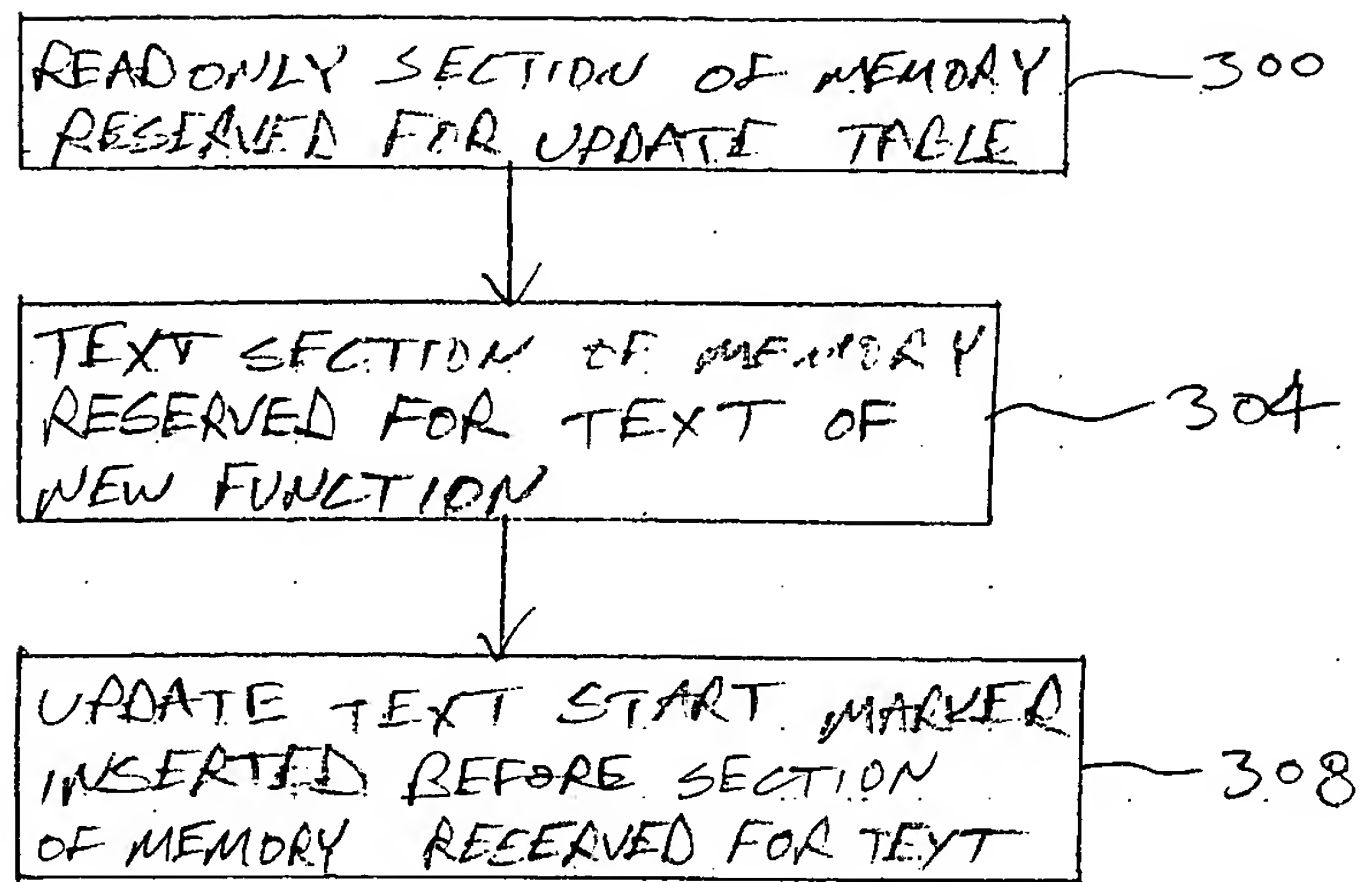 READ ONLY SECTION OF MEMORY
RESERVED FOR UPDATE TABLE
300
TEXT SECTION OF MEMORY
RESERVED FOR TEXT OF
NEW FUNCTION
304
UPDATE TEXT START MARKER
INSERTED BEFORE SECTION
OF MEMORY RESERVED FOR TEXT
308